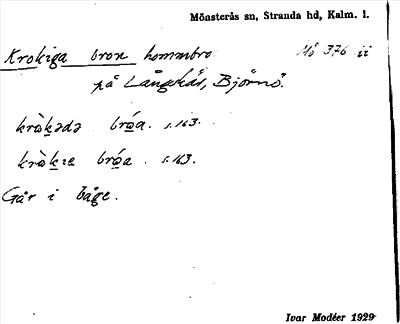 Mönsterås sn, Stranda hd, Kalm. l.
Krokiga bron hommbro Må 376 ii
på Långskär, Björnö.
kròkədə bróa. s. 163.
kròkıɛ bróa s. 163.
Går i båge.
Ivar Modéer 1929